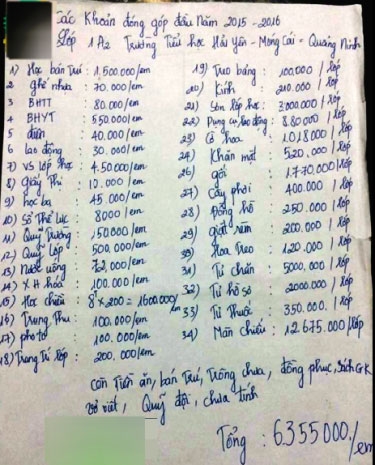 Các Khoản đóng góp đầu Năm 2015 - 2016
Lớp 1A2 Trường Tiểu học Hải Yên - Móng Cái - Quảng Ninh
1) Học bán Trú : 1,500.000/em
2 ghế nhựa : 70.000/em
3 BHTT : 80.000/em
4 BHYT : 550.000/em
5 điện : 40.000/em
6 lao động : 30.000/em
7) VS lớp học : 450.000/em
8) Giấy Thi : 10.000/em
9) học bạ : 45 000/em
10) Sổ Thể Lực : 8000/em
11) Quỹ Trường : 150000/em
12) Quỹ Lớp : 500,000/em
13) Nước uống : 72,000/em
14) X H hoá : 100.000/em
15) Học chiều : 8t x 200 = 1600.000/em
16) Trung Thu : 100.000/em
17) photo : 100.000/em
18) Trang Trí lớp : 200.000/em
19) Treo bảng : 100.000/lớp
20) Kính : 210.000/lớp
21) Sơn lớp học : 3000.000/lớp
22) Dụng cụ lao động : 880000/lớp
23) Cờ hoa : 1.018000/lớp
24) Khăn mặt : 520.000/lớp
26) gối : 1.770.000/lớp
27) Cây phơi : 400.000/lớp
28) Đồng hồ : 250.000/lớp
29) giặt rèm : 200.000/lớp
30) Hoa Treo : 120.000/lớp
31) Tủ chăn : 5000.000/lớp
32) Tủ hồ sơ : 2000.000/lớp
33) Tủ Thuốc : 350.000/lớp
34) Màn chiếu : 12 675.000/lớp
còn Tiền ăn, bán Trú, Trông chưa, đồng phục, Sách GK
vở viết, Quỹ đội, chưa tính
Tổng : 6.355 000/em